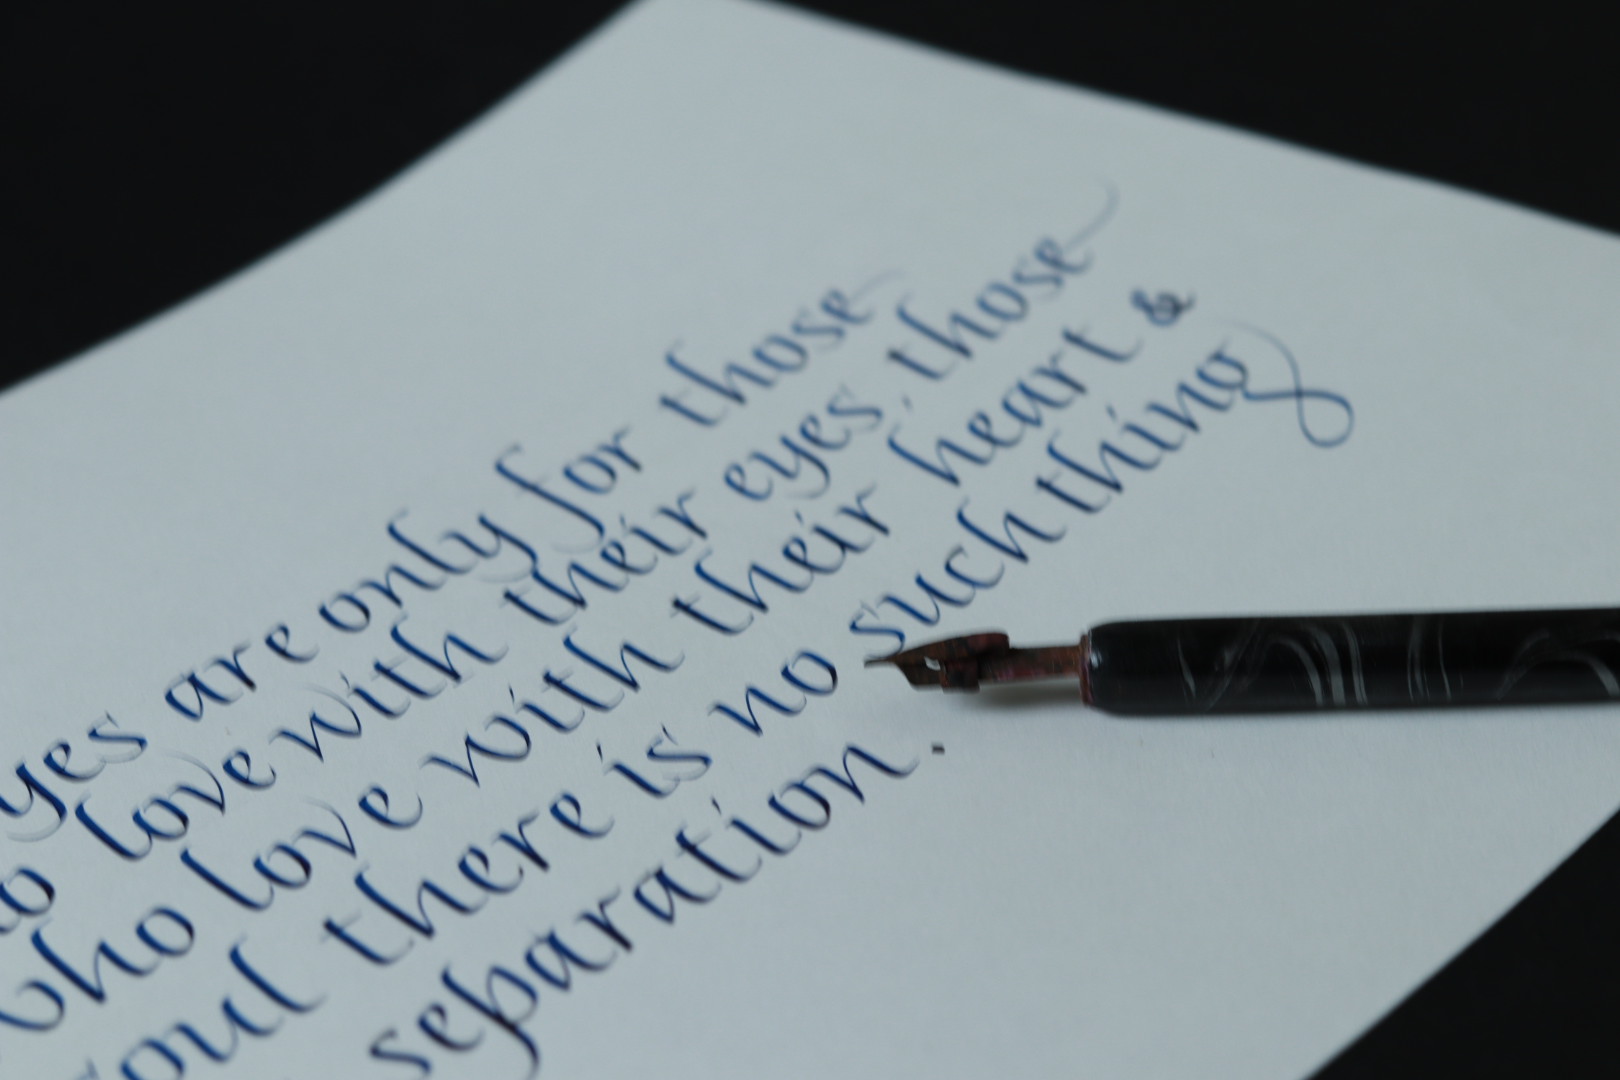 yes are only for those
love with their eyes, those
who love with their heart &
soul there is no such thing
separation.